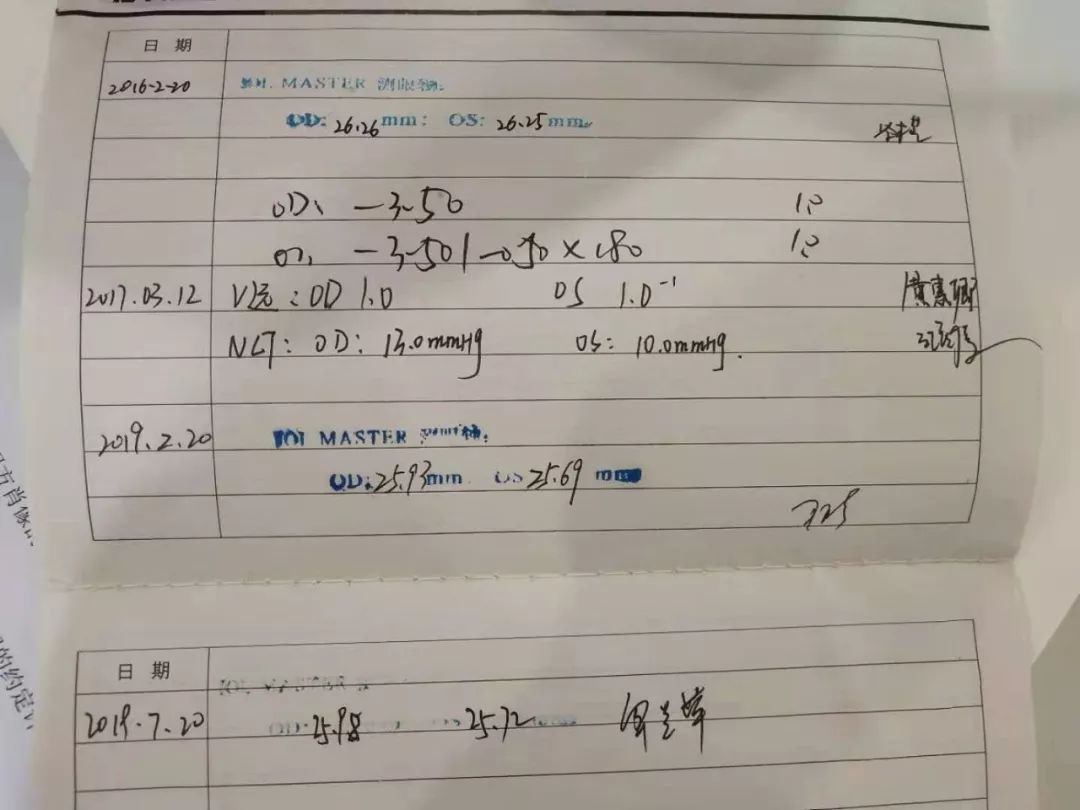 日 期
2016-2-20 MASTER 测眼轴:
OD: 26.26mm: OS: 26.25mm.
OD: -3.50 1.0
-3.50/-0.50×180 1.0
2017.03.12 V远: OD 1.0 OS 1.0⁻¹ 黄惠卿
NCT: OD: 13.0mmHg OS: 10.0mmHg.
2019.2.20 IOL MASTER
OD: 25.93mm OS 25.69 mm
日 期
IOL MASTER
2019.7.20 OD: 25.98 OS 25.72